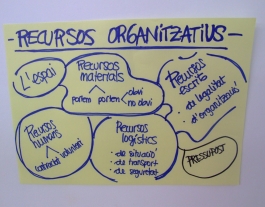 - RECURSOS ORGANITZATIUS -
L'espai
Recursos materials
portem portem
devi
no devi
Recursos escrits
· de legalitat
· d'organització
Recursos humans
contractat voluntari
Recursos logístics
· de situació
· de transport
· de seguretat
PRESSUPOST